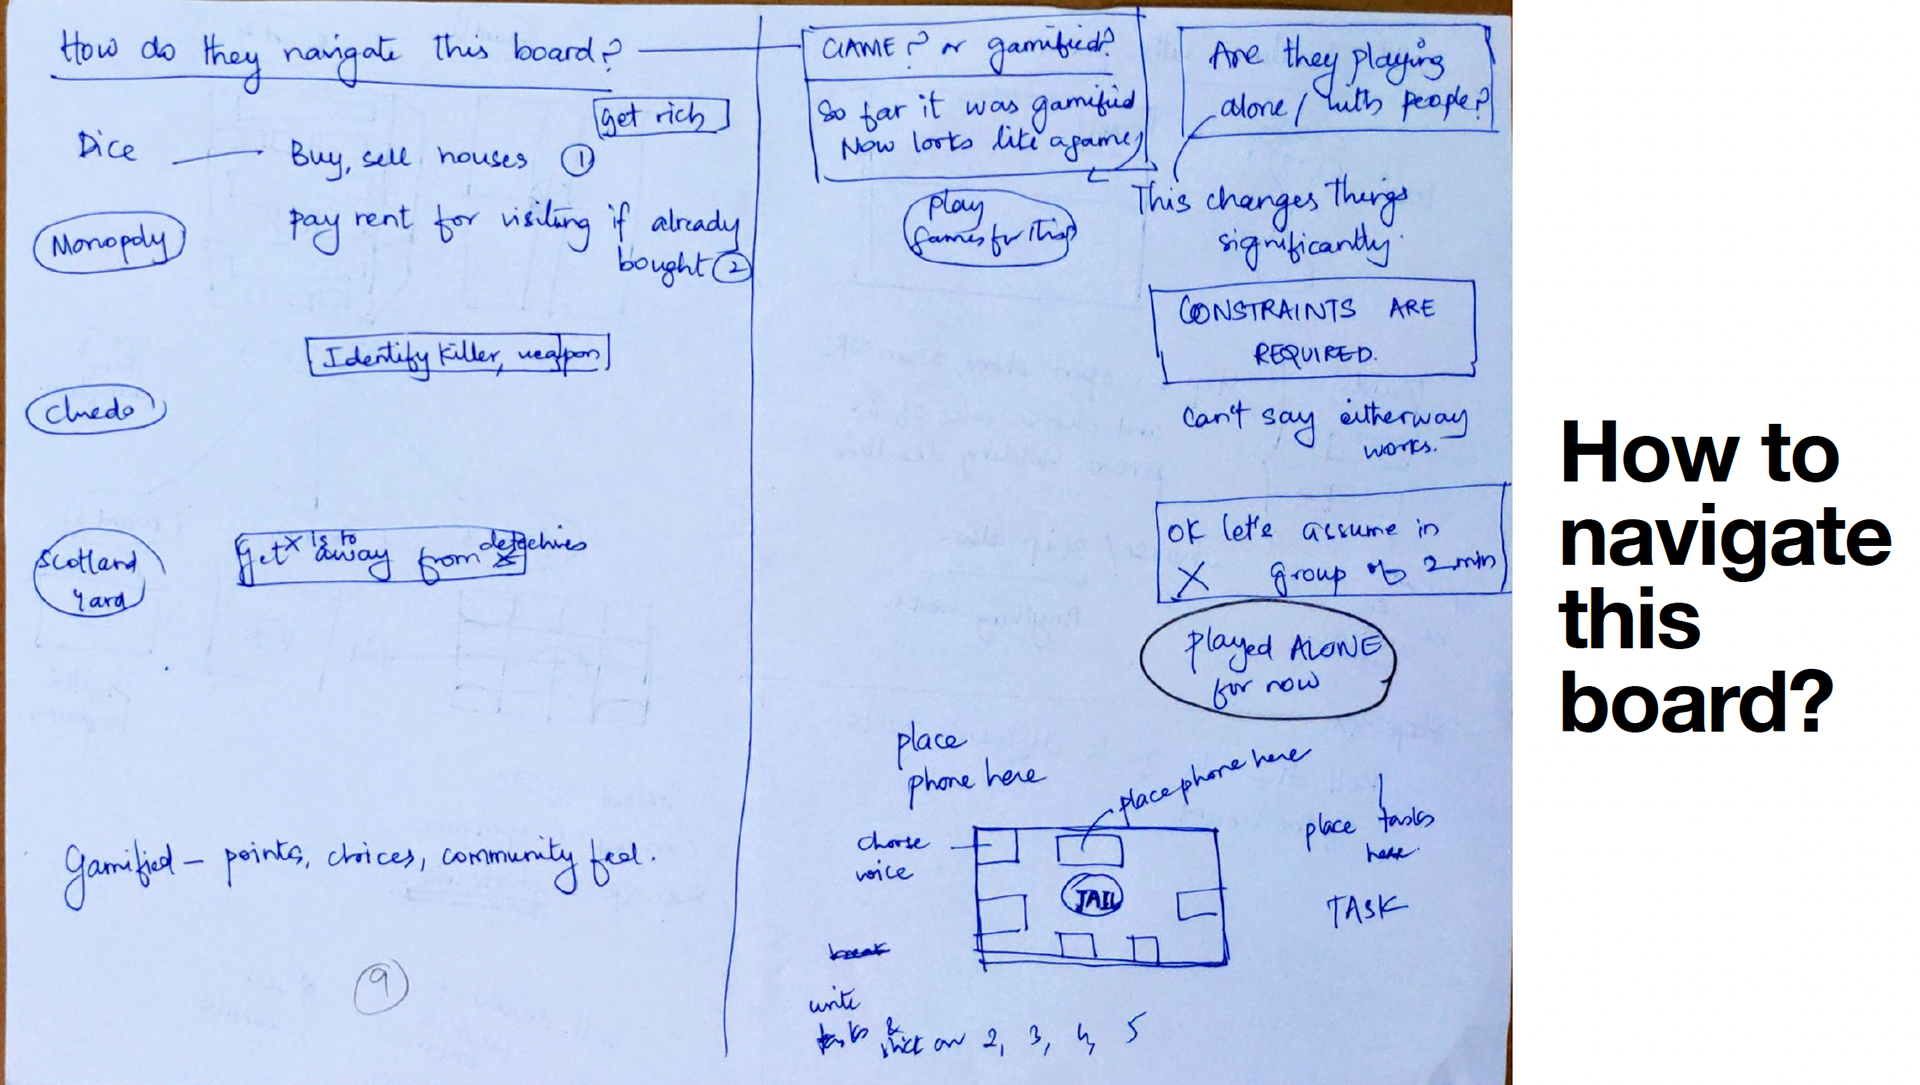 How do they navigate this board?
get rich
Dice
Buy, sell houses 1
Monopoly
pay rent for visiting if already
bought 2
Identify killer, weapon
Cluedo
Scotland
Yard
get X is to away from detectives
Gamified – points, choices, community feel.
9
GAME? or gamified?
So far it was gamified
Now looks like a game
play
games for this
Are they playing
alone / with people?
This changes things
significantly.
CONSTRAINTS ARE
REQUIRED.
Can't say either way
works.
OK let's assume in
X group of 2 min
played ALONE
for now
place
phone here
place phone here
choose
voice
JAIL
place tasks
here.
TASK
write
tasks &
stick on 2, 3, 4, 5
How to
navigate
this
board?